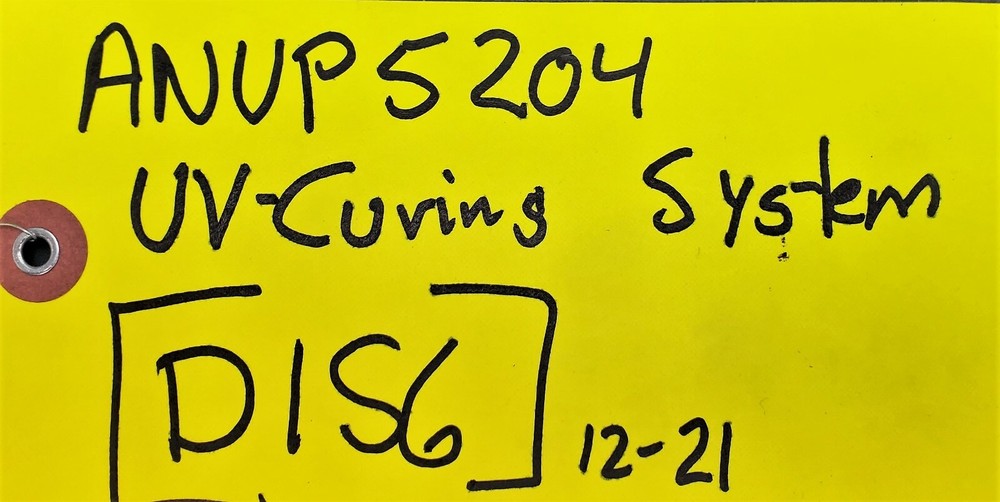 ANUP5204
UV-Curing System
[D1S6]
12-21